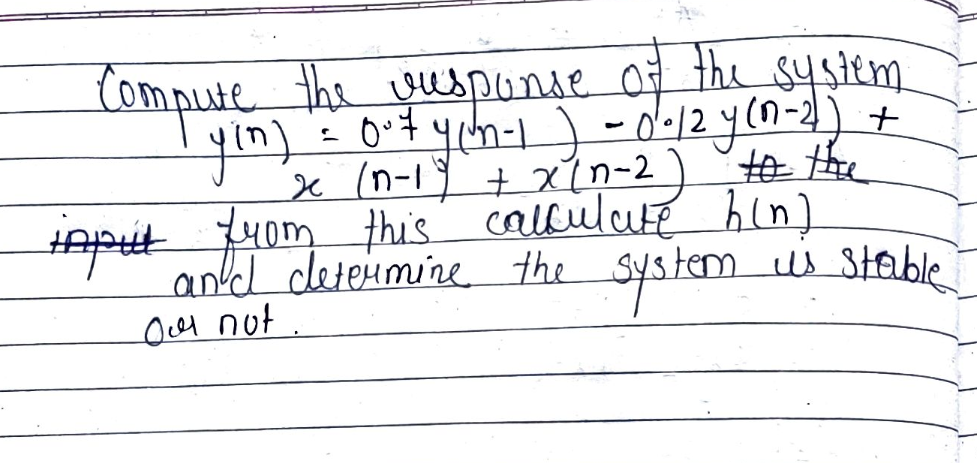 Compute the response of the system
y(n) = 0.7 y(n-1) - 0.12 y(n-2) +
x (n-1) + x(n-2) to the
input from this calculate h(n)
and determine the system is stable
or not.